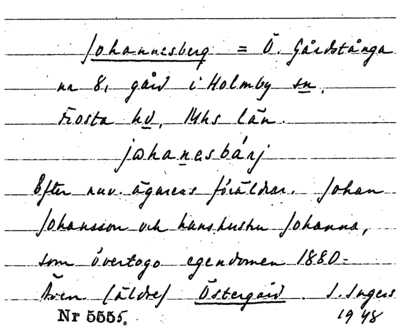 Johannesberg = Ö. Gårdstånga
nr 8, gård i Holmby sn,
Frosta hd, Mhs län.
johanesbárj
Efter nuv. ägarens föräldrar. Johan
Johansson och hans hustru Johanna,
som övertogo egendomen 1880-
Även (äldre) Östergård. I. Ingers
Nr 5555. 1948